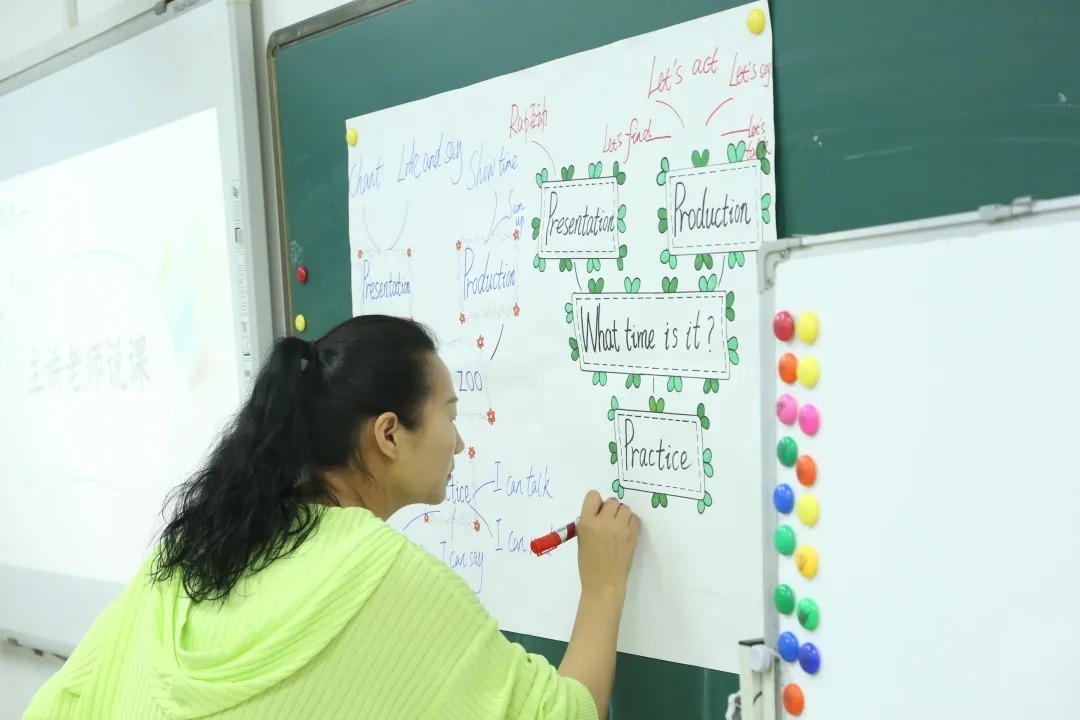 主讲老师说课
Chant
Show time
Sum
up
Presentation
Production
ZOO
tice
I can talk
I can
I can say
Let's act
Let's say
Let's find
Let's
Presentation
Production
What time is it?
Practice